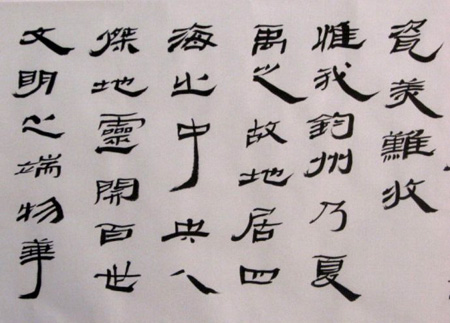 瓷美難收
惟我鈞州乃夏
禹之故地居四
海之中央人
傑地靈開百世
文明之端物華